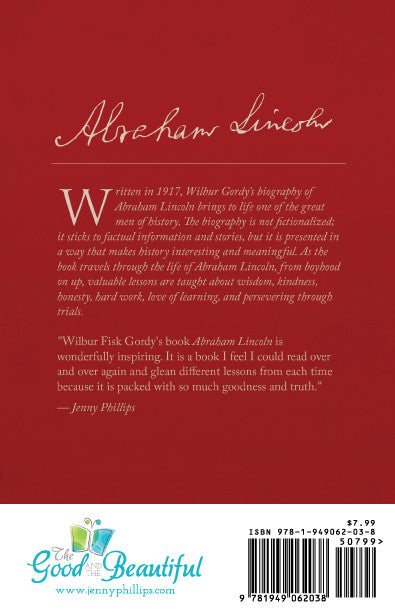 Abraham Lincoln
Written in 1917, Wilbur Gordy's biography of
Abraham Lincoln brings to life one of the great
men of history. The biography is not fictionalized;
it sticks to factual information and stories, but it is presented in
a way that makes history interesting and meaningful. As the
book travels through the life of Abraham Lincoln, from boyhood
on up, valuable lessons are taught about wisdom, kindness,
honesty, hard work, love of learning, and persevering through
trials.
"Wilbur Fisk Gordy's book Abraham Lincoln is
wonderfully inspiring. It is a book I feel I could read over
and over again and glean different lessons from each time
because it is packed with so much goodness and truth."
— Jenny Phillips
The
Good AND THE Beautiful
www.jennyphillips.com
$7.99
50799>
ISBN 978-1-949062-03-8
9 781949 062038